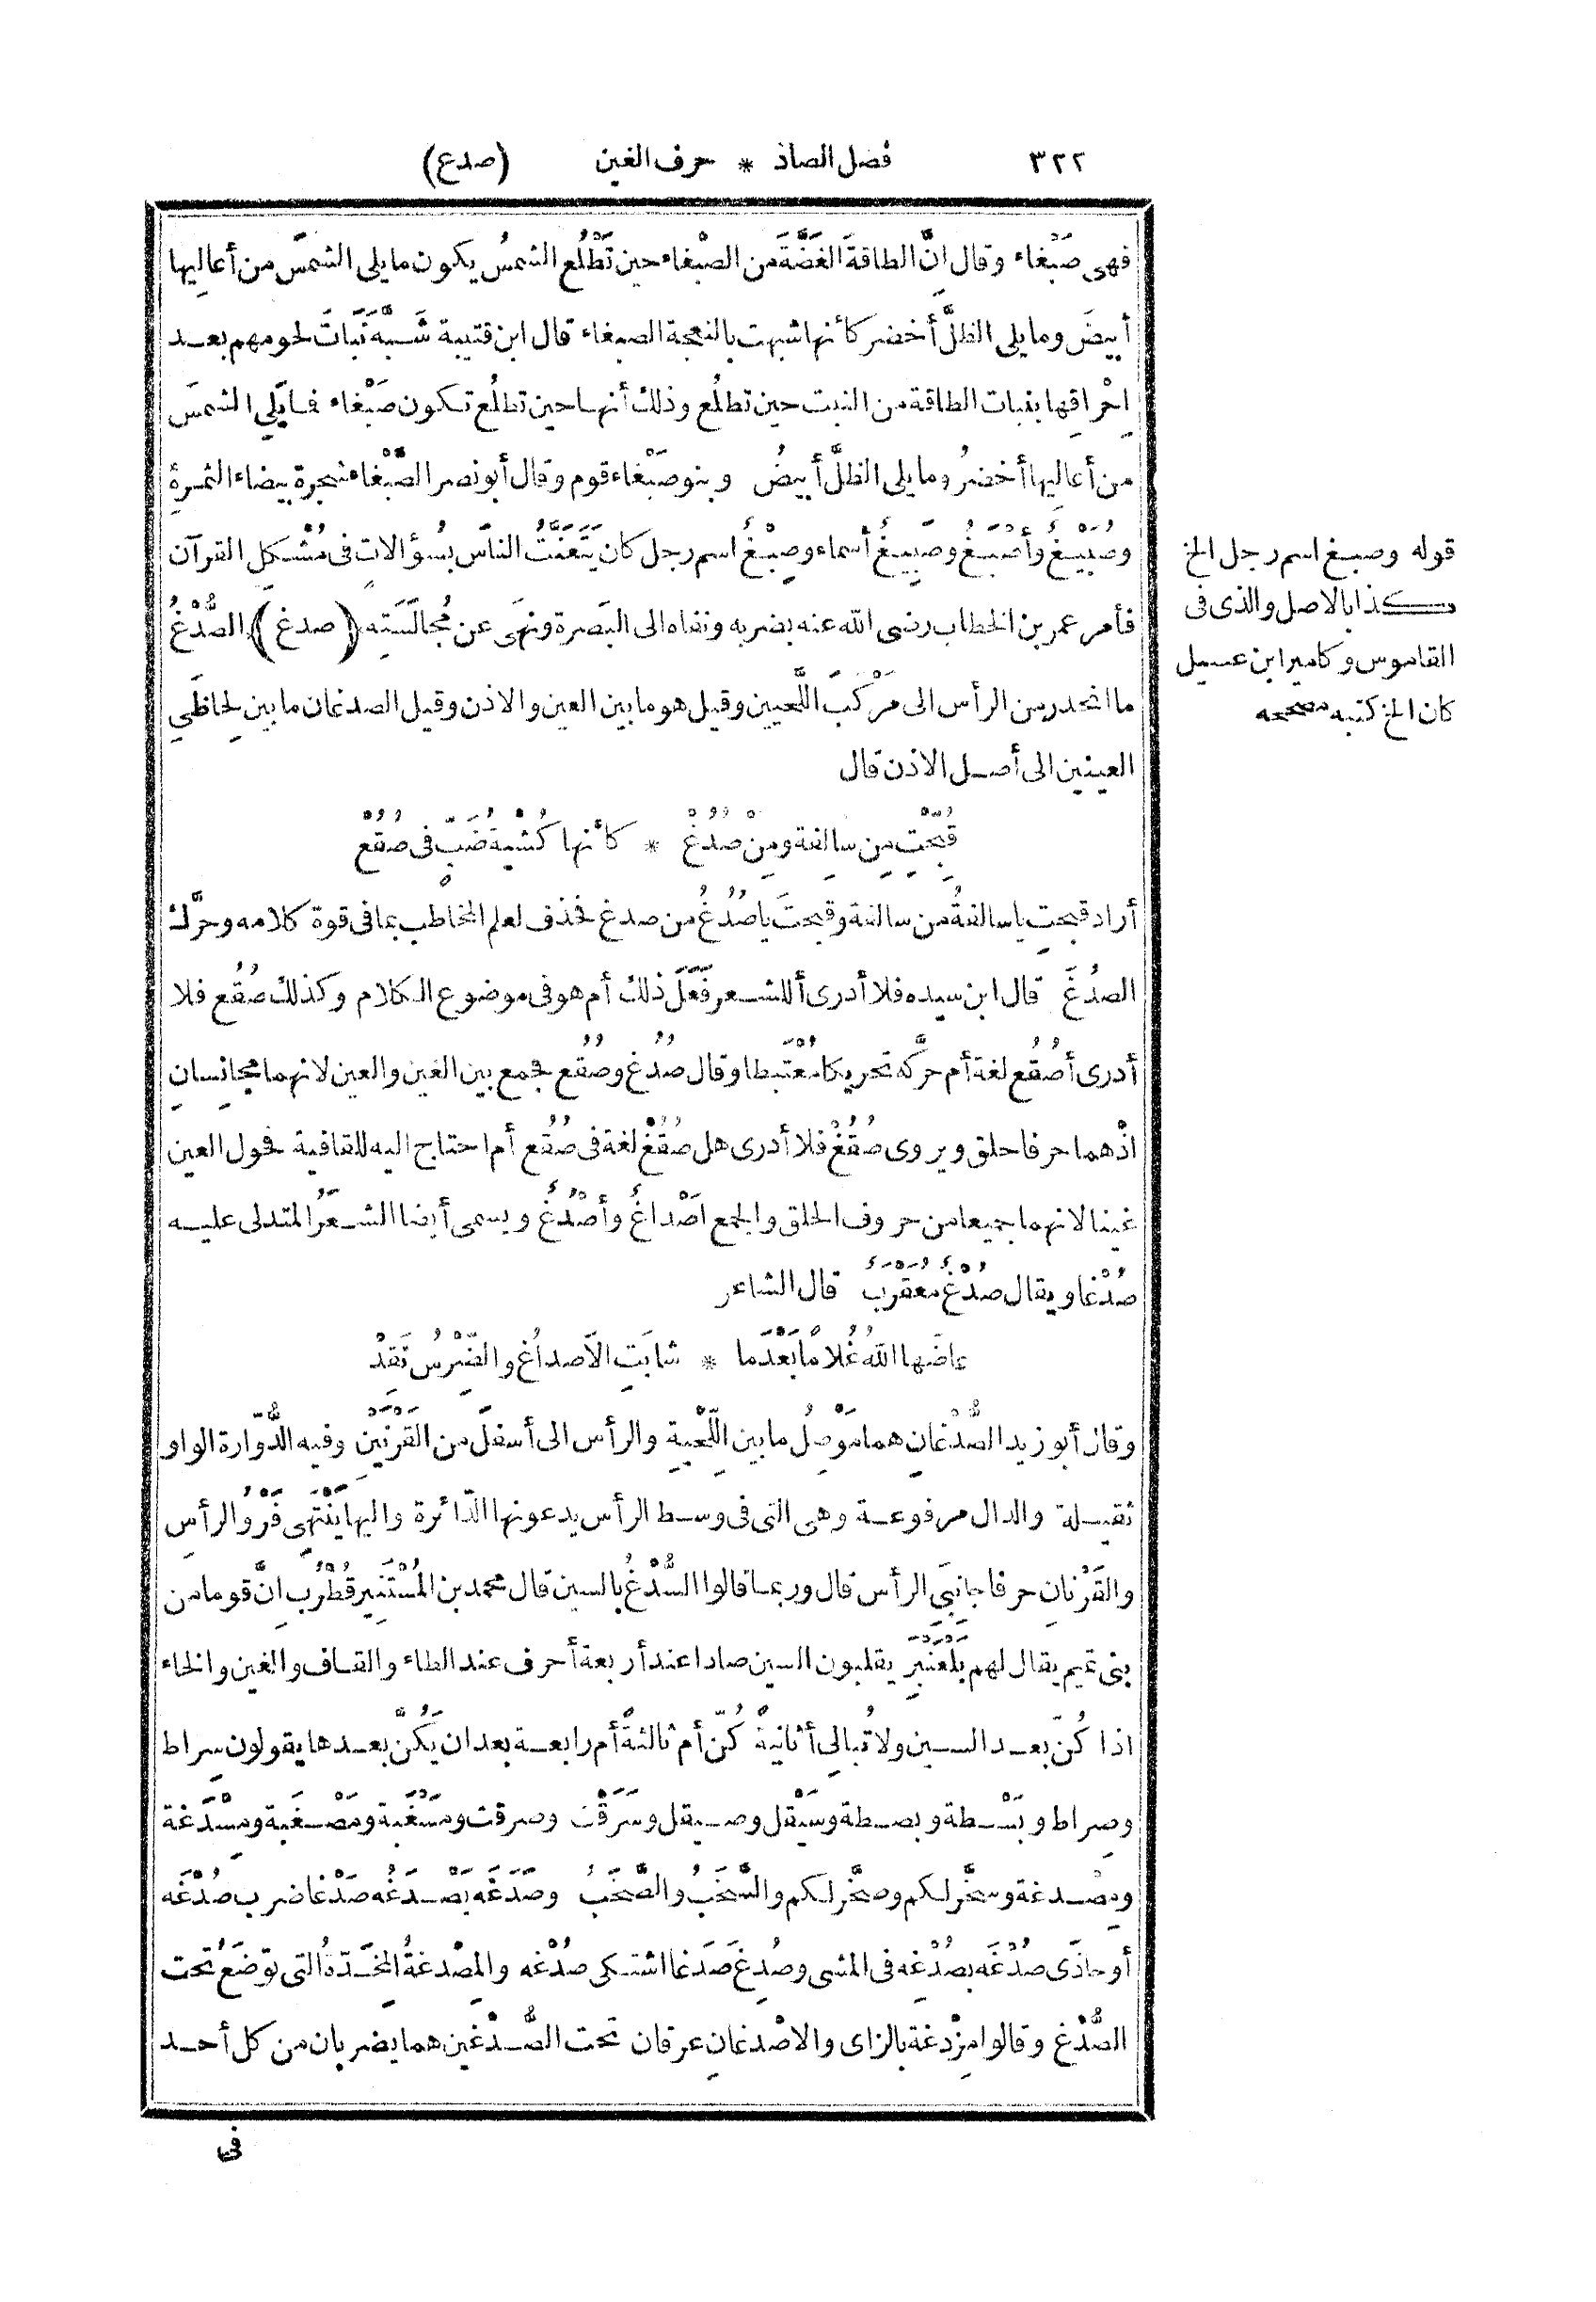 ٣٢٢ فصل الصاد * حرف الغين (صدغ)
فهى صَبْغاء وقال إِنَّ الطاقةَ الغَضَّةَ من الصبْغاء حين تَطْلُع الشمسُ يكون ما يلى الشمسَ من أَعالِيها
أَبيضَ وما يلى الظلَّ أَخضر كأَنها شبهت بالنعجة الصبغاء قال ابن قتيبة شَبَّه نَبَاتَ لحومهم بعد
إِحْراقِها بنبات الطاقة من النبت حين تطلُع وذلك أنها حين تطلُع تكون صَبْغاء فما يَلِي الشمسَ
من أَعالِيها أَخضرُ وما يلى الظلَّ أَبيضُ وبنو صَبْغاء قوم وقال أبو نصر الصَّبْغاء شجرة بيضاء الثمرةِ
وصُبَيْغٌ وأَصْبَغُ وصَبِيغٌ أسماء وصِبْغٌ اسم رجل كان يَتَعَنَّتُ الناسَ بسُؤالات فى مُشْكِل القرآن
فأمر عمر بن الخطاب رضى الله عنه بضربه ونفاه الى البَصرة ونهَى عن مُجالَسَتِه (صدغ) الصُّدْغُ
ما انحدر من الرأس الى مَرْكَب اللَّحيين وقيل هو ما بين العين والاذن وقيل الصدغان ما بين لِحاظَيِ
العينين الى أصل الاذن قال
قُبِّحْتِ من سالِفة ومِنْ صُدُغْ * كأَنها كُشْيةُ ضَبٍّ فى صُقُعْ
أراد قبحتِ يا سالفةُ من سالفة وقبحتَ يا صُدُغُ من صدغ فحذف لعلم المخاطب بما فى قوة كلامه وحرَّك
الصدُغَ قال ابن سيده فلا أدرى أللشعر فَعَلَ ذلك أم هو فى موضوع الكلام وكذلك صُقُع فلا
أدرى أصُقُع لغة أم حرَّكه تحريكا مُعْتَبَطا وقال صُدُغ وصُقُع فجمع بين الغين والعين لانهما مجانِسانِ
اذْ هما حرفا حلق ويروى صُقُغْ فلا أدرى هل صُقُغْ لغة فى صُقُع أم احتاج اليه للقافية فحول العين
غينا لانهما جميعا من حروف الحلق والجمع أَصْداغٌ وأَصْدُغٌ ويسمى أيضا الشعَرُ المتدلى عليه
صُدْغا ويقال صُدْغٌ مُعَقْرَبٌ قال الشاعر
عاضَها اللهُ غُلاماً بَعْدَما * شابَتِ الأَصداغُ والضِّرْسُ نَقِدْ
وقال أبو زيد الصُّدْغانِ هما مَوْصِلُ ما بين اللِّحْيةِ والرأس الى أسفلَ من القَرْنَيْنِ وفيه الدُّوّارة الواو
ثقيلة والدال مرفوعة وهى التى فى وسط الرأس يدعونها الدّائرة واليها يَنْتَهِي فَرْوُ الرأسِ
والقَرْنانِ حرفا جانِبَيِ الرأس قال وربما قالوا السُّدْغُ بالسين قال محمد بن المُسْتَنِير قُطْرُب إِنَّ قوما من
بنى تميم يقال لهم بَلْعَنْبَرِ يقلبون السين صادا عند أربعة أحرف عند الطاء والقاف والغين والخاء
اذا كُنّ بعد السين ولا تُبالِي أَثانيةً كُنّ أم ثالثةً أم رابعة بعد ان يَكُنَّ بعدها يقولون سِراط
وصِراط وبَسْطة وبصطة وسَيْقل وصيقل وسَرَقْت وصرقت ومَسْغَبة ومَصْغَبة ومِسْدَغة
ومِصْدغة وسخَّر لكم وصخَّر لكم والسَّخَبُ والصَّخَبُ وصَدَغَه يَصْدَغُه صَدْغا ضرب صُدْغَه
أو حاذَى صُدْغَه بصُدْغِه فى المشى وصُدِغَ صَدَغا اشتكى صُدْغَه والمِصْدغةُ المِخَدّةُ التى توضَعُ تحت
الصُّدْغ وقالوا مِزْدغة بالزاى والاصْدغانِ عرقان تحت الصُّدْغين هما يضربان من كل أحد
فى
قوله وصبغ اسم رجل الخ
كذا بالاصل والذى فى
القاموس وكامير ابن عسيل
كان الخ كتبه مصححه